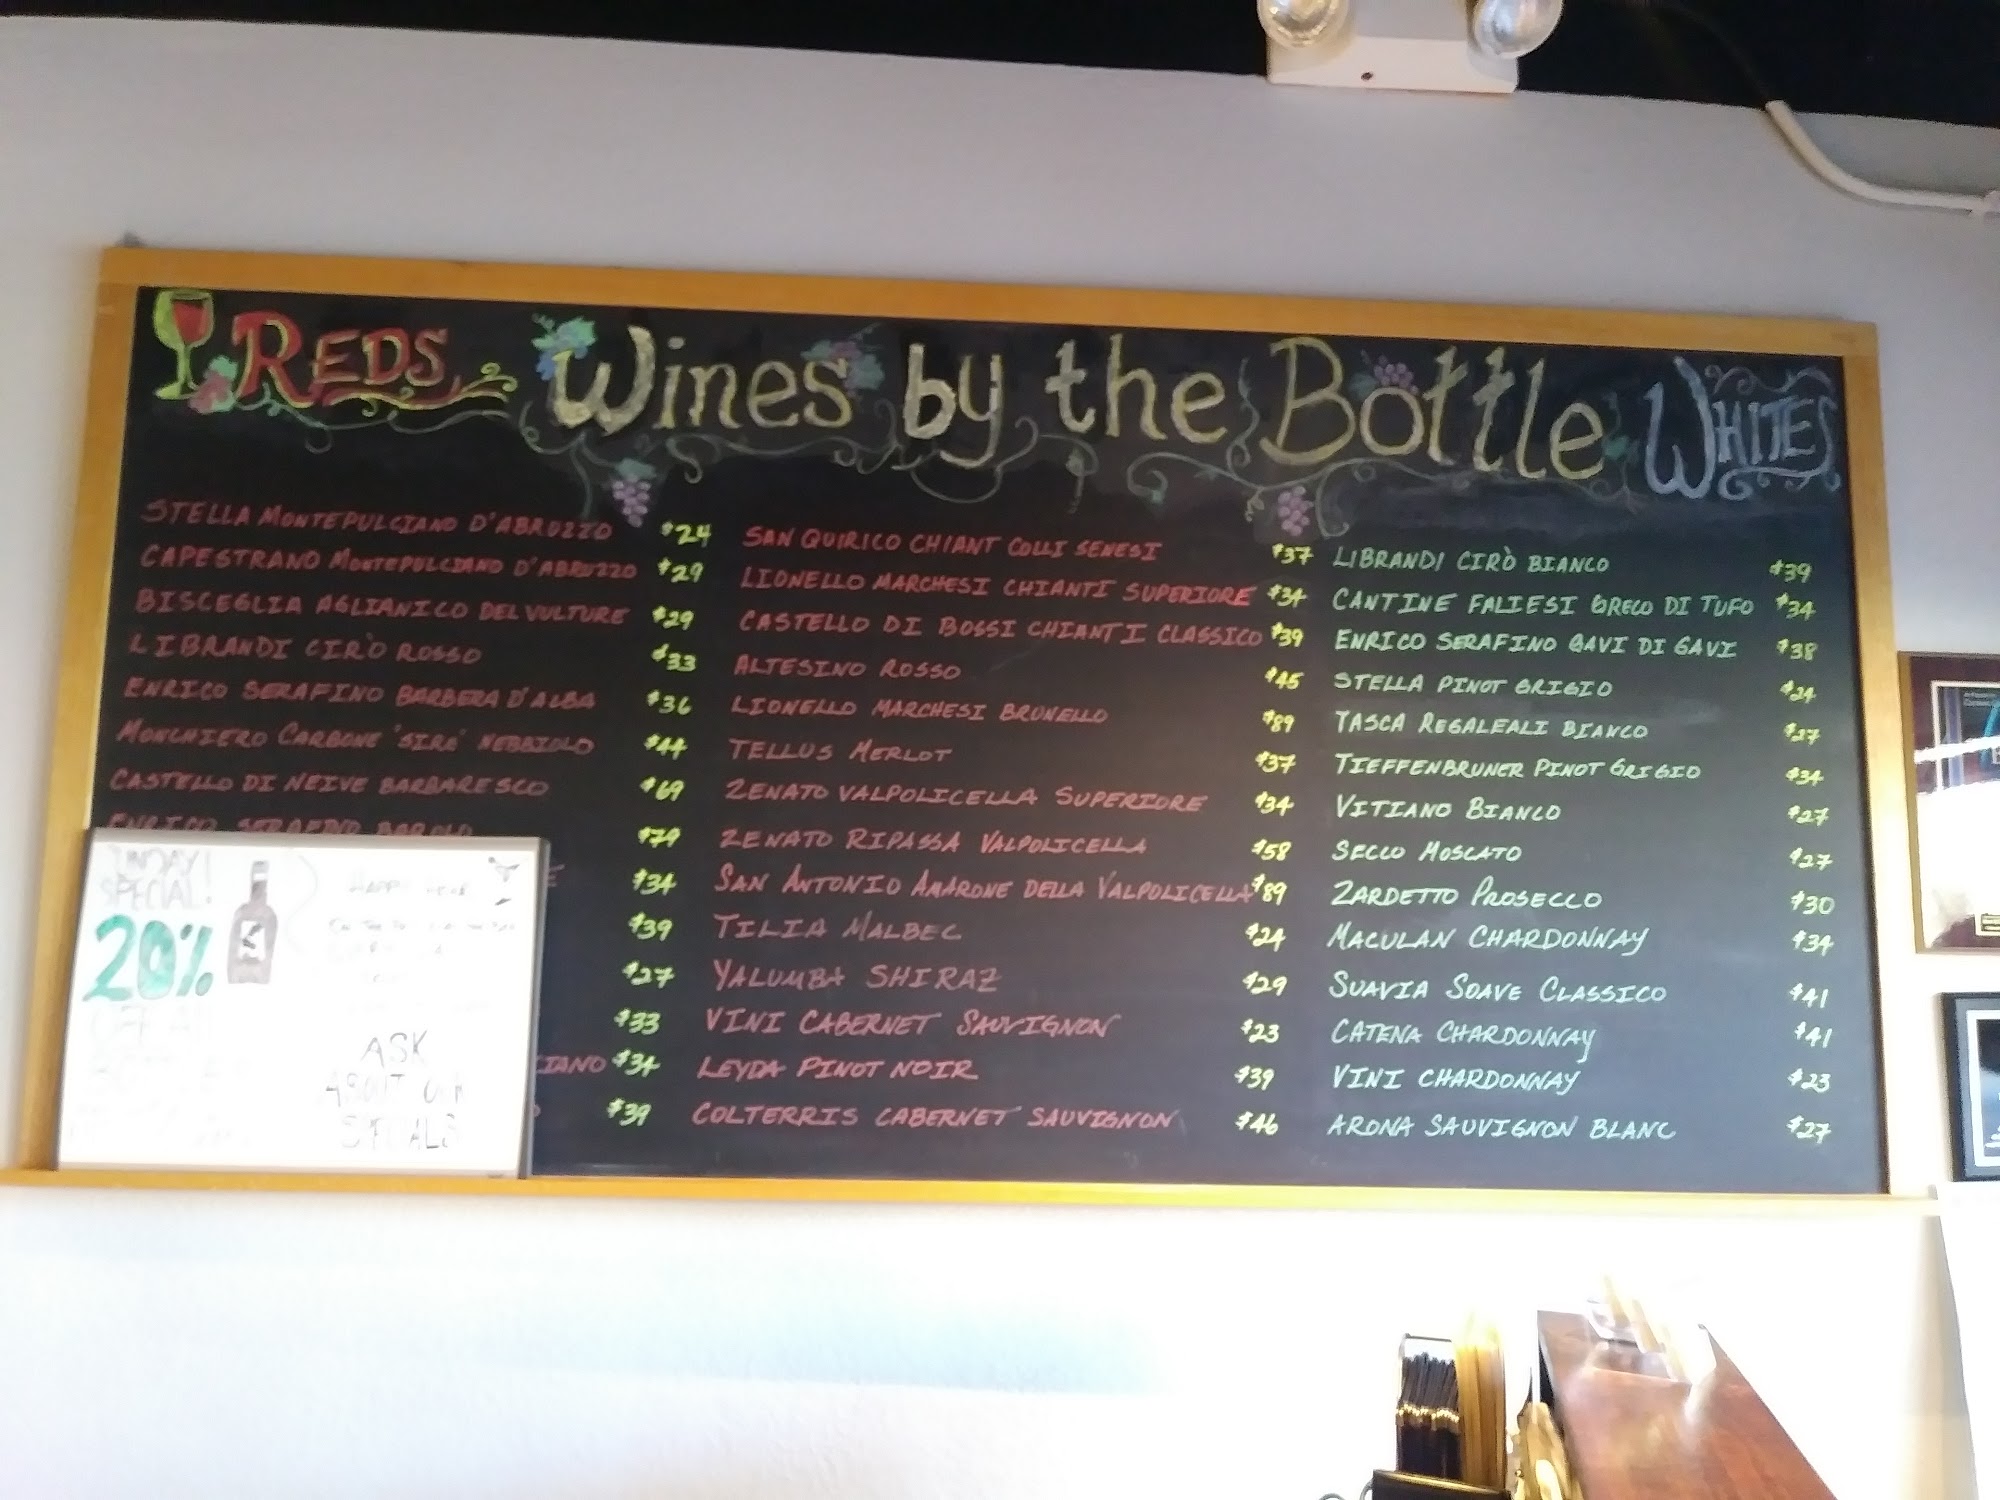 REDS Wines by the Bottle WHITES
STELLA MONTEPULCIANO D'ABRUZZO $24
CAPESTRANO MONTEPULCIANO D'ABRUZZO $29
BISCEGLIA AGLIANICO DEL VULTURE $29
LIBRANDI CIRÒ ROSSO $33
ENRICO SERAFINO BARBERA D'ALBA $36
MONCHIERO CARBONE 'SIRE' NEBBIOLO $44
CASTELLO DI NEIVE BARBARESCO $69
ENRICO SERAFINO BAROLO $79
$34
$39
$27
$33
CIANO $34
$39
SAN QUIRICO CHIANT COLLI SENESI $37
LIONELLO MARCHESI CHIANTI SUPERIORE $34
CASTELLO DI BOSSI CHIANTI CLASSICO $39
ALTESINO ROSSO $45
LIONELLO MARCHESI BRUNELLO $89
TELLUS MERLOT $37
ZENATO VALPOLICELLA SUPERIORE $34
ZENATO RIPASSA VALPOLICELLA $58
SAN ANTONIO AMARONE DELLA VALPOLICELLA $89
TILIA MALBEC $24
YALUMBA SHIRAZ $29
VINI CABERNET SAUVIGNON $23
LEYDA PINOT NOIR $39
COLTERRIS CABERNET SAUVIGNON $46
LIBRANDI CIRÒ BIANCO $39
CANTINE FALIESI GRECO DI TUFO $34
ENRICO SERAFINO GAVI DI GAVI $38
STELLA PINOT GRIGIO $24
TASCA REGALEALI BIANCO $27
TIEFFENBRUNER PINOT GRIGIO $34
VITIANO BIANCO $27
SECCO MOSCATO $27
ZARDETTO PROSECCO $30
MACULAN CHARDONNAY $34
SUAVIA SOAVE CLASSICO $41
CATENA CHARDONNAY $41
VINI CHARDONNAY $23
ARONA SAUVIGNON BLANC $27
SUNDAY!
SPECIAL!
20%
OFF ALL
HAPPY HOUR
ASK
ABOUT OUR
SPECIALS